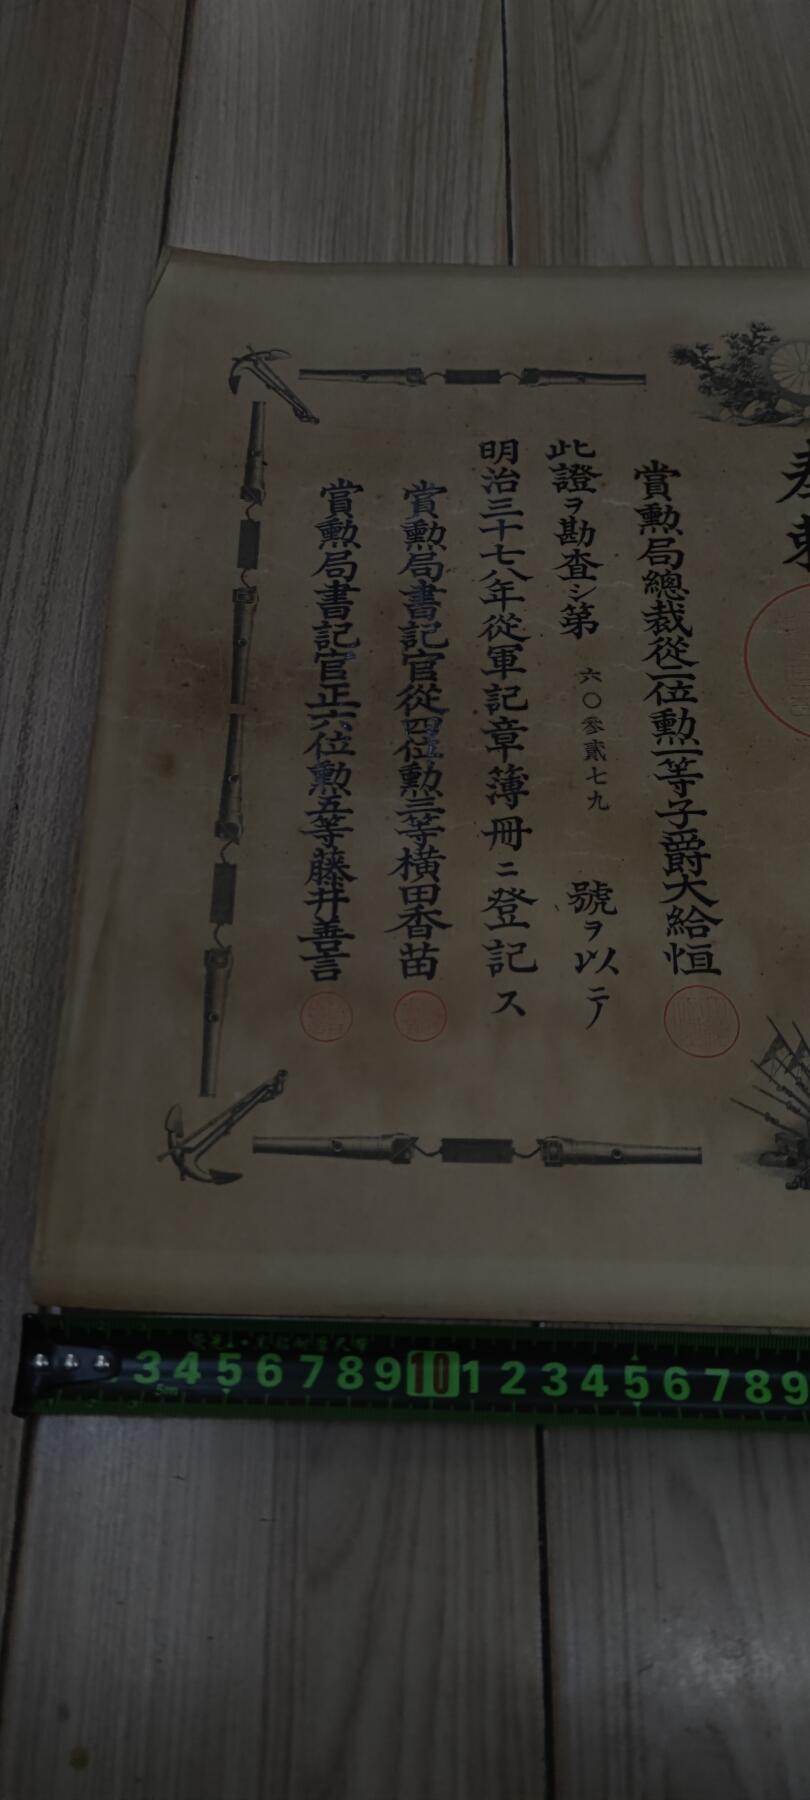 賞勲局總裁從二位勲一等子爵大給恒
此證ヲ勘査シ第六〇参貳七九號ヲ以テ
明治三十七八年從軍記章簿冊ニ登記ス
賞勲局書記官從四位勲三等横田香苗
賞勲局書記官正六位勲五等藤井善言
3 4 5 6 7 8 9 10 1 2 3 4 5 6 7 8 9
5m